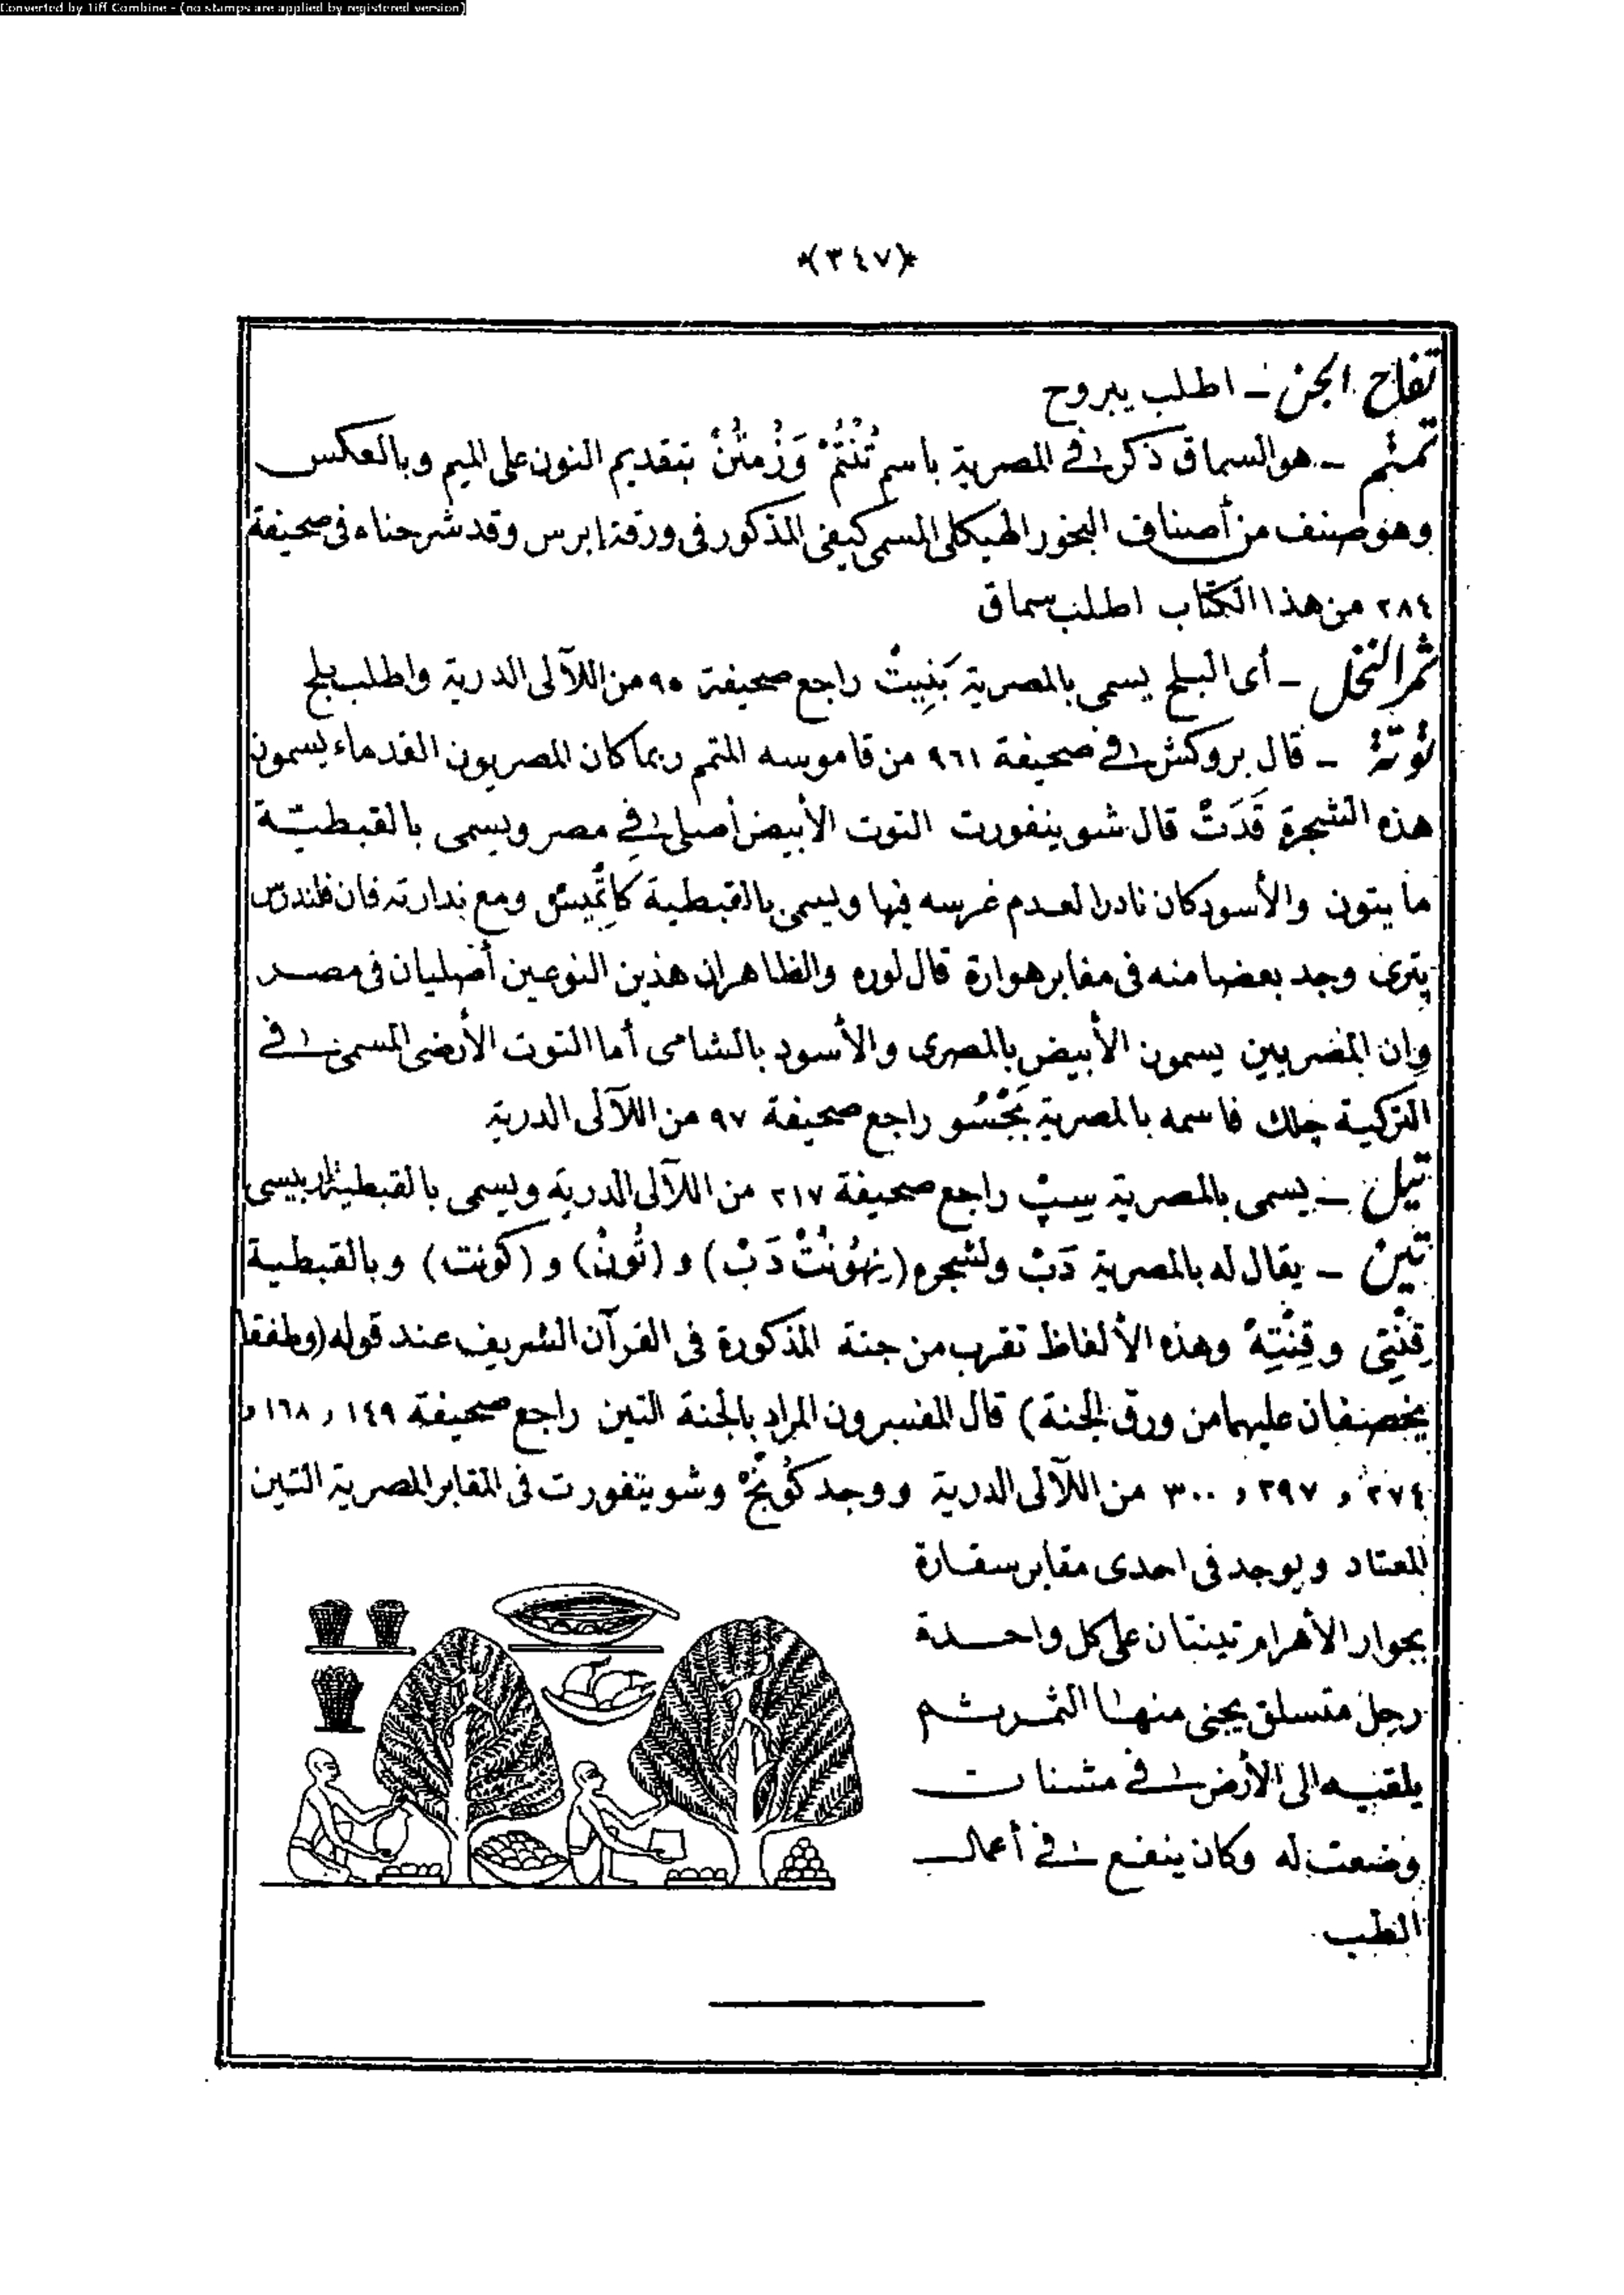 Converted by Tiff Combine - (no stamps are applied by registered version)
*(٣٤٧)*
تفاح الجن – اطلب يبروح
تمتم – هو السماق ذكر فى المصرية باسم تُنْتُمْ وَزُمْتُنْ بتقديم النون على الميم وبالعكس
وهو صنف من أصناف البخور الهيكلى المسمى كيفى المذكور فى ورقة إبرس وقد شرحناه فى صحيفة
٢٨٤ من هذا الكتاب اطلب سماق
ثمر النخل – أى البلح يسمى بالمصرية بَنِيتْ راجع صحيفة ٩٥ من اللآلى الدرية واطلب بلح
تُوتَة – قال بروكش فى صحيفة ٩٦١ من قاموسه المتمم ربما كان المصريون القدماء يسمون
هذه الشجرة قَدَتْ قال شوينفورت التوت الأبيض أصلى فى مصر ويسمى بالقبطية
مايتون والأسود كان نادرا لعدم غرسه فيها ويسمى بالقبطية ومع ندارته فان فلندرس
پترى وجد بعضا منه فى مقابر هوارة قال لوره والظاهر ان هذين النوعين أصليان فى مصر
وان المصريين يسمون الأبيض بالمصرى والأسود بالشامى أما التوت الأرضى المسمى فى
التركية چلك فاسمه بالمصرية راجع صحيفة ٩٧ من اللآلى الدرية
تيل – يسمى بالمصرية راجع صحيفة ٢١٧ من اللآلى الدرية ويسمى بالقبطية
تين – يقال له بالمصرية دَبْ ولشجره (نِهُونْتْ دَبْ) و (نُونْ) و (كونت) وبالقبطية
قِنْتِى وقِنْتِهْ وهذه الألفاظ تقرب من جنة المذكورة فى القرآن الشريف عند قوله (وطفقا
يخصفان عليهما من ورق الجنة) قال المفسرون المراد بالجنة التين راجع صحيفة ١٤٩ و ١٦٨ و
٢٧٤ و ٢٩٧ و ٣٠٠ من اللآلى الدرية ووجد وشوينفورت فى المقابر المصرية التين
المعتاد ويوجد فى احدى مقابر سقارة
بجوار الأهرام تينتان على كل واحدة
رجل متسلق يجنى منها الثمر ثم
يلقيه الى الأرض فى مشنات
وضعت له وكان ينفع فى أعمال
الطب